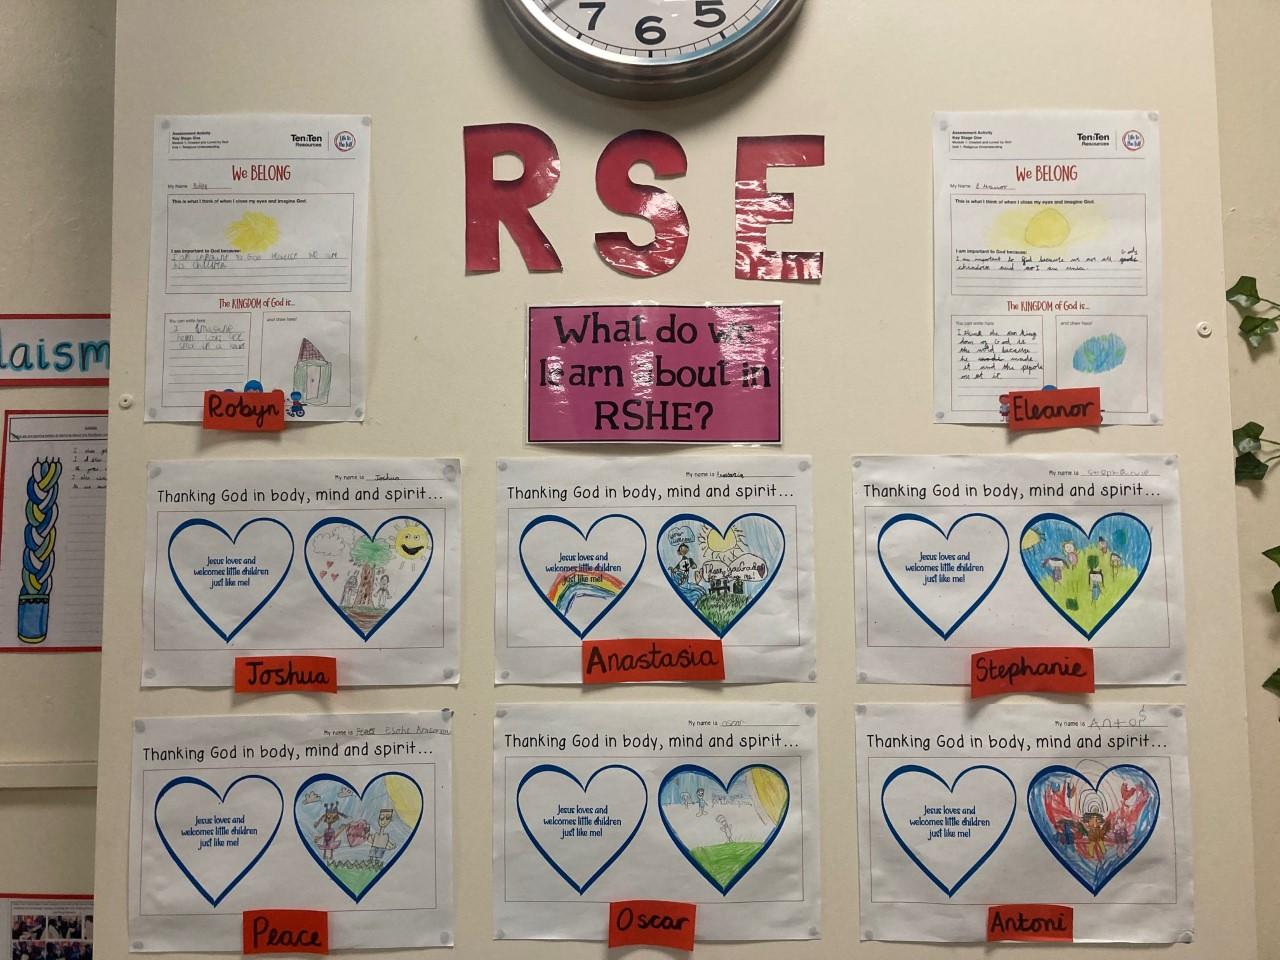 7 6 5
RSE
What do we
learn about in
RSHE?
Assessment Activity
Key Stage One
Module 1: Created and Loved by God
Unit 1: Religious Understanding
Ten:Ten
Resources
Life to
the Full
We BELONG
My Name
This is what I think of when I close my eyes and imagine God.
I am important to God because:
I am
to God
we are
his children
The KINGDOM of God is...
You can write here
and draw here!
I imagine
Robyn
Assessment Activity
Key Stage One
Module 1: Created and Loved by God
Unit 1: Religious Understanding
Ten:Ten
Resources
Life to
the Full
We BELONG
My Name Eleanor
This is what I think of when I close my eyes and imagine God.
I am important to God because:
I am important to God because we are all
and I am
The KINGDOM of God is...
You can write here
and draw here!
I think the king
dom of God is
the because
he made
it and the
Eleanor
laism
My name is Joshua
Thanking God in body, mind and spirit...
Jesus loves and
welcomes little children
just like me!
Joshua
My name is
Thanking God in body, mind and spirit...
Jesus loves and
welcomes little children
just like me!
Anastasia
My name is Stephanie
Thanking God in body, mind and spirit...
Jesus loves and
welcomes little children
just like me!
Stephanie
My name is Peace
Thanking God in body, mind and spirit...
Jesus loves and
welcomes little children
just like me!
Peace
My name is oscar
Thanking God in body, mind and spirit...
Jesus loves and
welcomes little children
just like me!
Oscar
My name is
Thanking God in body, mind and spirit...
Jesus loves and
welcomes little children
just like me!
Antoni